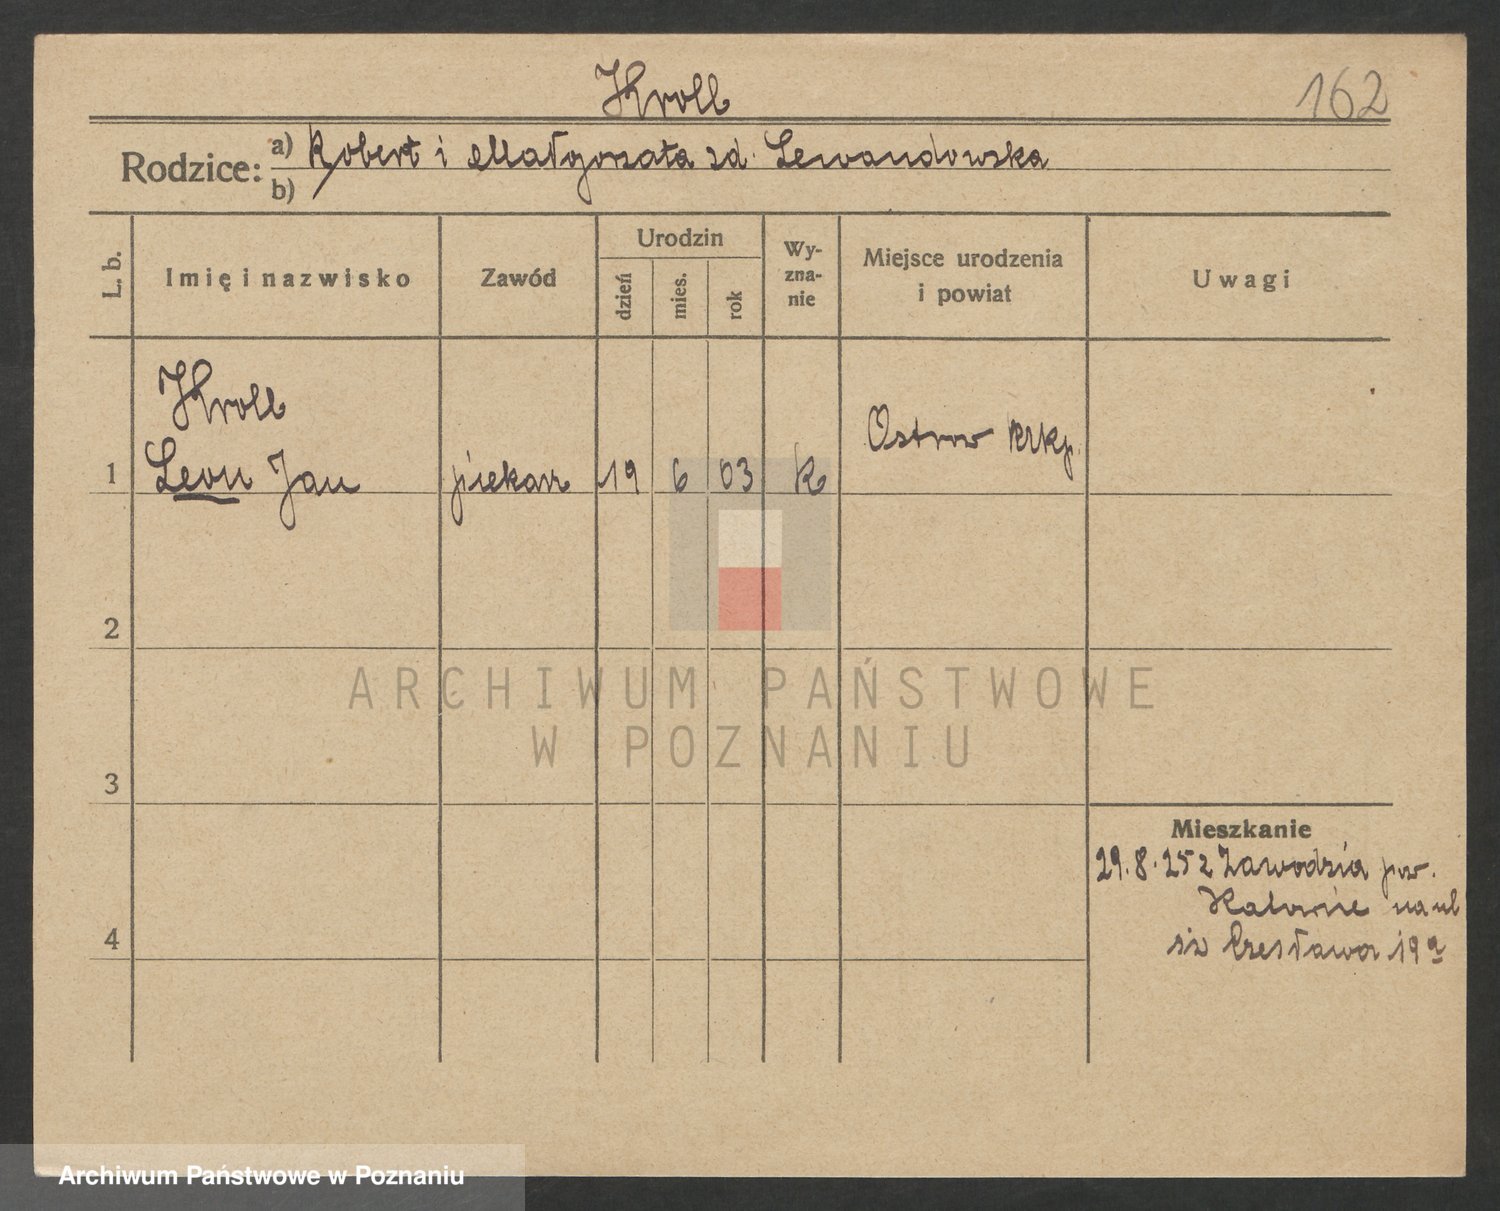 Kroll
162
Rodzice: a) Robert i Małgorzata zd. Lewandowska
b)
L. b.
Imię i nazwisko
Zawód
Urodzin
dzień
mies.
rok
Wy-
zna-
nie
Miejsce urodzenia
i powiat
Uwagi
Kroll
1 Leon Jan piekarz 19 6 03 k Ostrow Wlkp.
2
ARCHIWUM PAŃSTWOWE
W POZNANIU
3
Mieszkanie
29.8.25 z Zawodzia pow.
Katowice na ul
św Czesława 19a
4
Archiwum Państwowe w Poznaniu